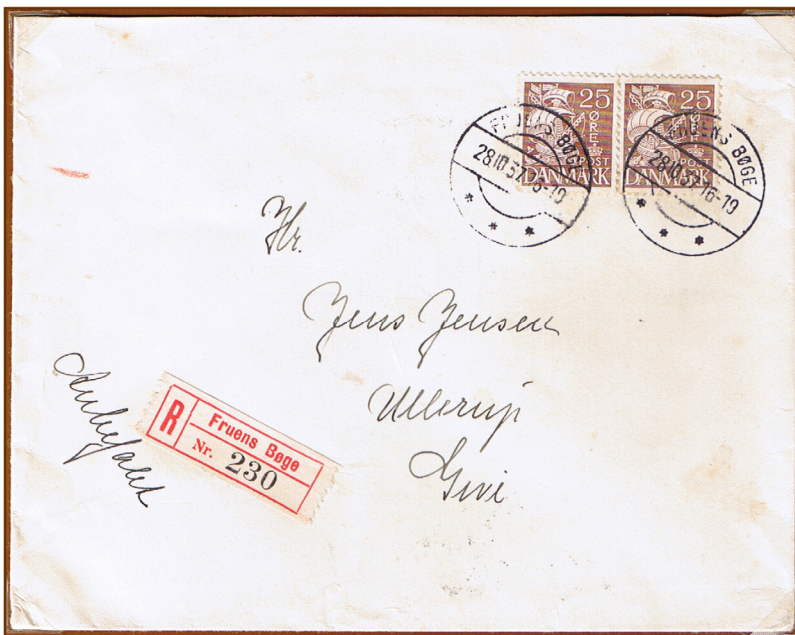 25 ØRE POST DANMARK
25 ØRE POST DANMARK
FRUENS BØGE 28.10.37.16-19
FRUENS BØGE 28.10.37.16-19
Hr.
Jens Jensen
Ullerup
Give
Anbefalet
R Fruens Bøge
Nr. 230